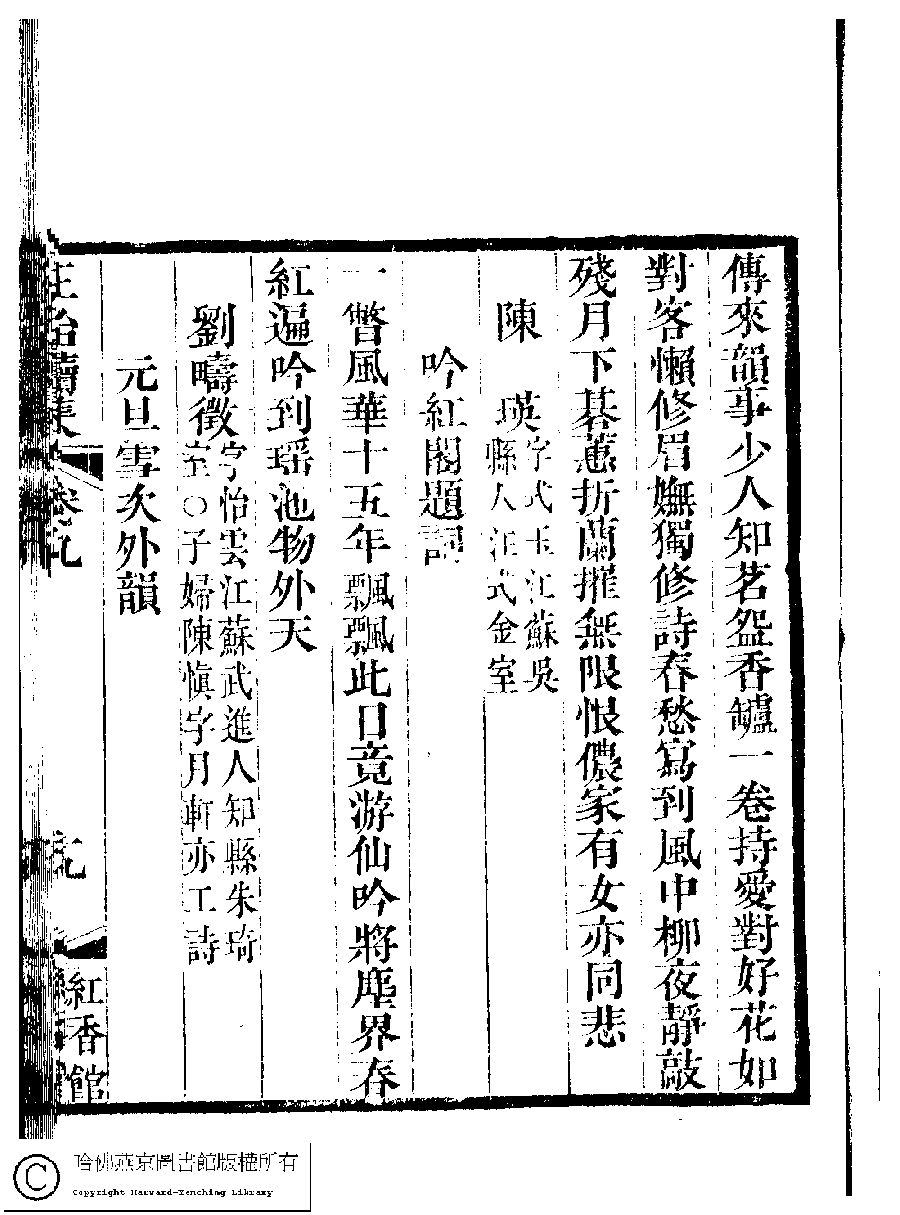 傳來韻事少人知茗盌香罏一卷持愛對好花如
對客懶修眉嫵獨修詩春愁寫到風中柳夜靜敲
殘月下棊蕙折蘭摧無限恨儂家有女亦同悲
陳　瑛字式玉江蘇吳
縣人汪式金室
吟紅閣題詞
一瞥風華十五年飄飄此日竟游仙吟將塵界春
紅遍吟到瑤池物外天
劉疇徵字怡雲江蘇武進人知縣朱琦
室○子婦陳愼字月軒亦工詩
元旦雪次外韻
續集 卷九
九
紅香館
哈佛燕京圖書館版權所有
Copyright Harvard-Yenching Library